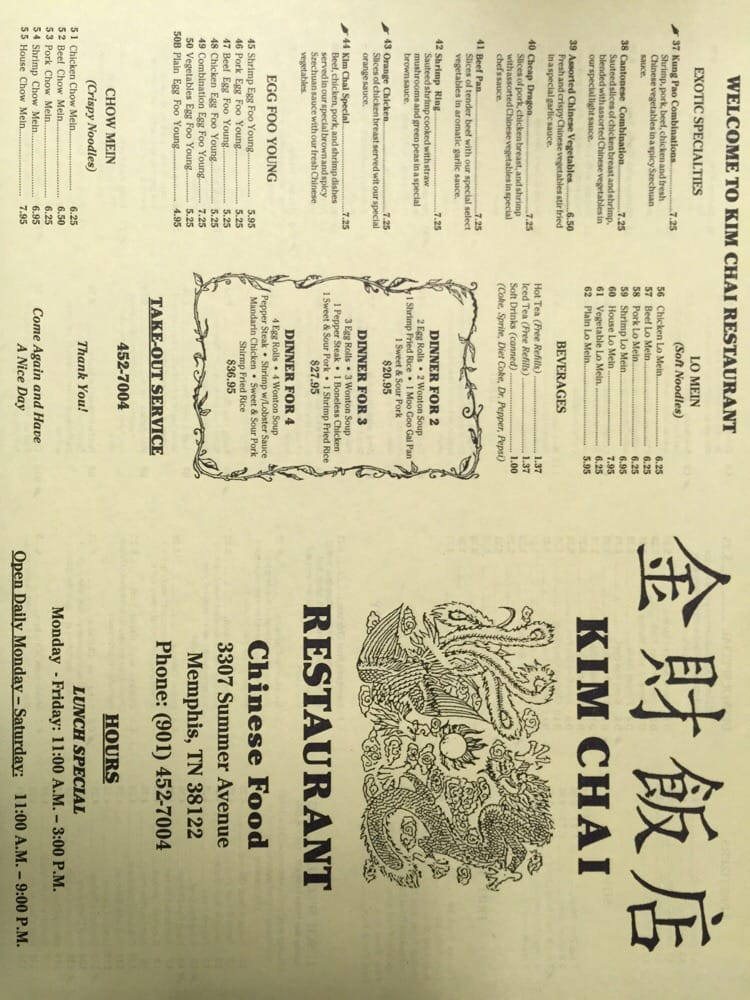 WELCOME TO KIM CHAI RESTAURANT
EXOTIC SPECIALTIES
37 Kung Pao Combinations..............7.25
Shrimp, pork, beef, chicken and fresh
Chinese vegetables in a spicy Szechuan
sauce.
38 Cantonese Combination..............7.25
Sauteed slices of chicken breast and shrimp,
blended with assorted Chinese vegetables in
our special light sauce.
39 Assorted Chinese Vegetables........6.50
Fresh and crispy Chinese vegetables stir fried
in a special garlic sauce.
40 Cheap Dragon......................7.25
Slices of pork, chicken breast, and shrimp
with assorted Chinese vegetables in special
chef's sauce.
41 Beef Pan..........................7.25
Slices of tender beef with our special select
vegetables in aromatic garlic sauce.
42 Shrimp Ring.......................7.25
Sauteed shrimp cooked with straw
mushrooms and green peas in a special
brown sauce.
43 Orange Chicken....................7.25
Slices of chicken breast served wit our special
orange sauce.
44 Kim Chai Special..................7.25
Beef, chicken, pork, and shrimp dishes
served in our special brown and spicy
Szechuan sauce with our fresh Chinese
vegetables.
EGG FOO YOUNG
45 Shrimp Egg Foo Young..............5.95
46 Pork Egg Foo Young................5.25
47 Beef Egg Foo Young................5.25
48 Chicken Egg Foo Young.............5.25
49 Combination Egg Foo Young.........7.25
50 Vegetables Egg Foo Young..........5.25
50B Plain Egg Foo Young..............4.95
CHOW MEIN
(Crispy Noodles)
51 Chicken Chow Mein.................6.25
52 Beef Chow Mein....................6.50
53 Pork Chow Mein....................6.25
54 Shrimp Chow Mein..................6.95
55 House Chow Mein...................7.95
LO MEIN
(Soft Noodles)
56 Chicken Lo Mein...................6.25
57 Beef Lo Mein......................6.25
58 Pork Lo Mein......................6.25
59 Shrimp Lo Mein....................6.95
60 House Lo Mein.....................7.95
61 Vegetable Lo Mein.................6.25
62 Plain Lo Mein.....................5.95
BEVERAGES
Hot Tea (Free Refills)...............1.37
Iced Tea (Free Refills)..............1.37
Soft Drinks (canned).................1.00
(Coke, Sprite, Diet Coke, Dr. Pepper, Pepsi)
DINNER FOR 2
2 Egg Rolls • 2 Wonton Soup
1 Shrimp Fried Rice • 1 Moo Goo Gai Pan
1 Sweet & Sour Pork
$20.95
DINNER FOR 3
3 Egg Rolls • 3 Wonton Soup
1 Pepper Steak • 1 Boneless Chicken
1 Sweet & Sour Pork • 1 Shrimp Fried Rice
$27.95
DINNER FOR 4
4 Egg Rolls • 4 Wonton Soup
Pepper Steak • Shrimp w/Lobster Sauce
Mandarin Chicken • Sweet & Sour Pork
Shirmp Fried Rice
$36.95
TAKE-OUT SERVICE
452-7004
Thank You!
Come Again and Have
A Nice Day
金財飯店
KIM CHAI
RESTAURANT
Chinese Food
3307 Summer Avenue
Memphis, TN 38122
Phone: (901) 452-7004
HOURS
LUNCH SPECIAL
Monday - Friday: 11:00 A.M. – 3:00 P.M.
Open Daily Monday – Saturday: 11:00 A.M. – 9:00 P.M.